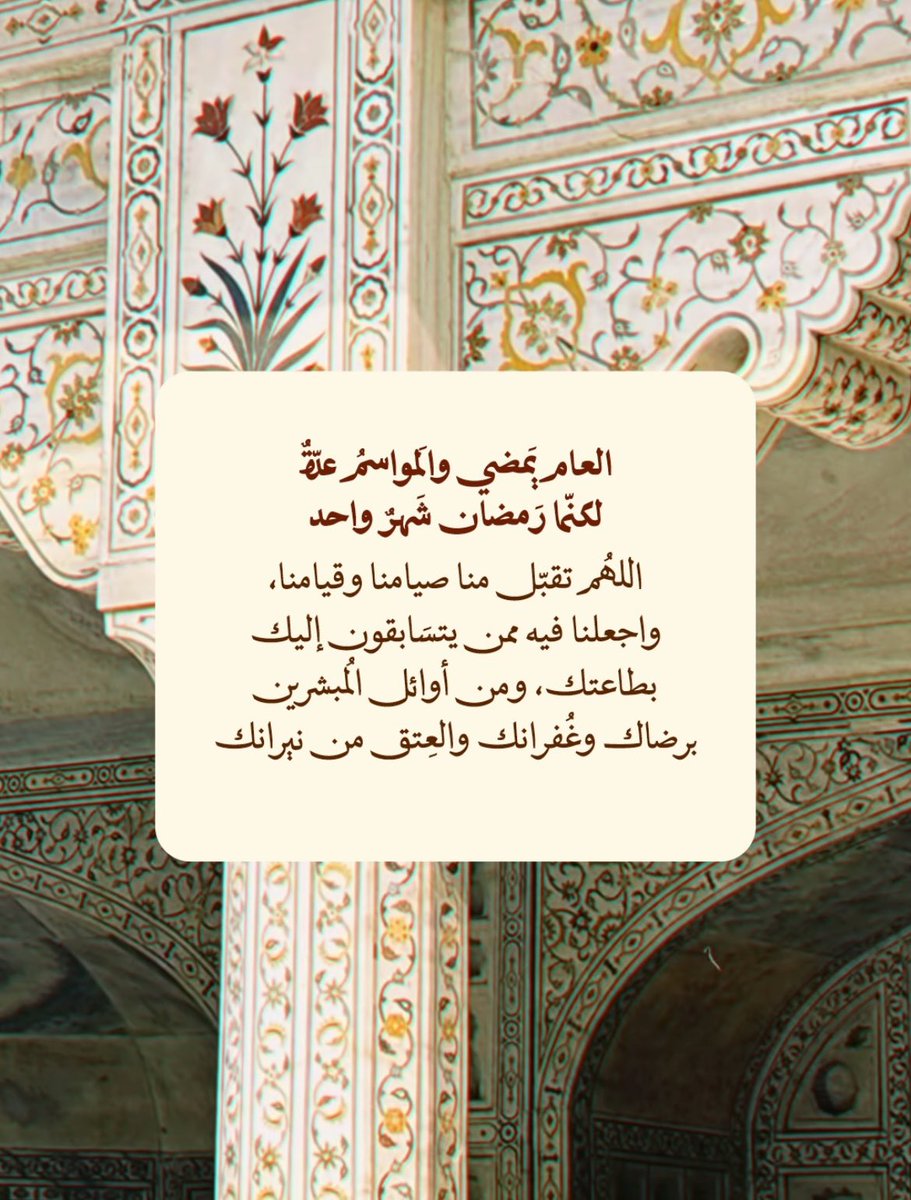 العام يَمضي والَمواسمُ عدّةٌ
لكنّما رَمضان شَهرٌ واحد
اللهُم تقبّل منا صيامنا وقيامنا،
واجعلنا فيه ممن يتسَابقون إليك
بطاعتك، ومن أوائل الُمبشرين
برضاك وغُفرانك والعِتق من نيرانك